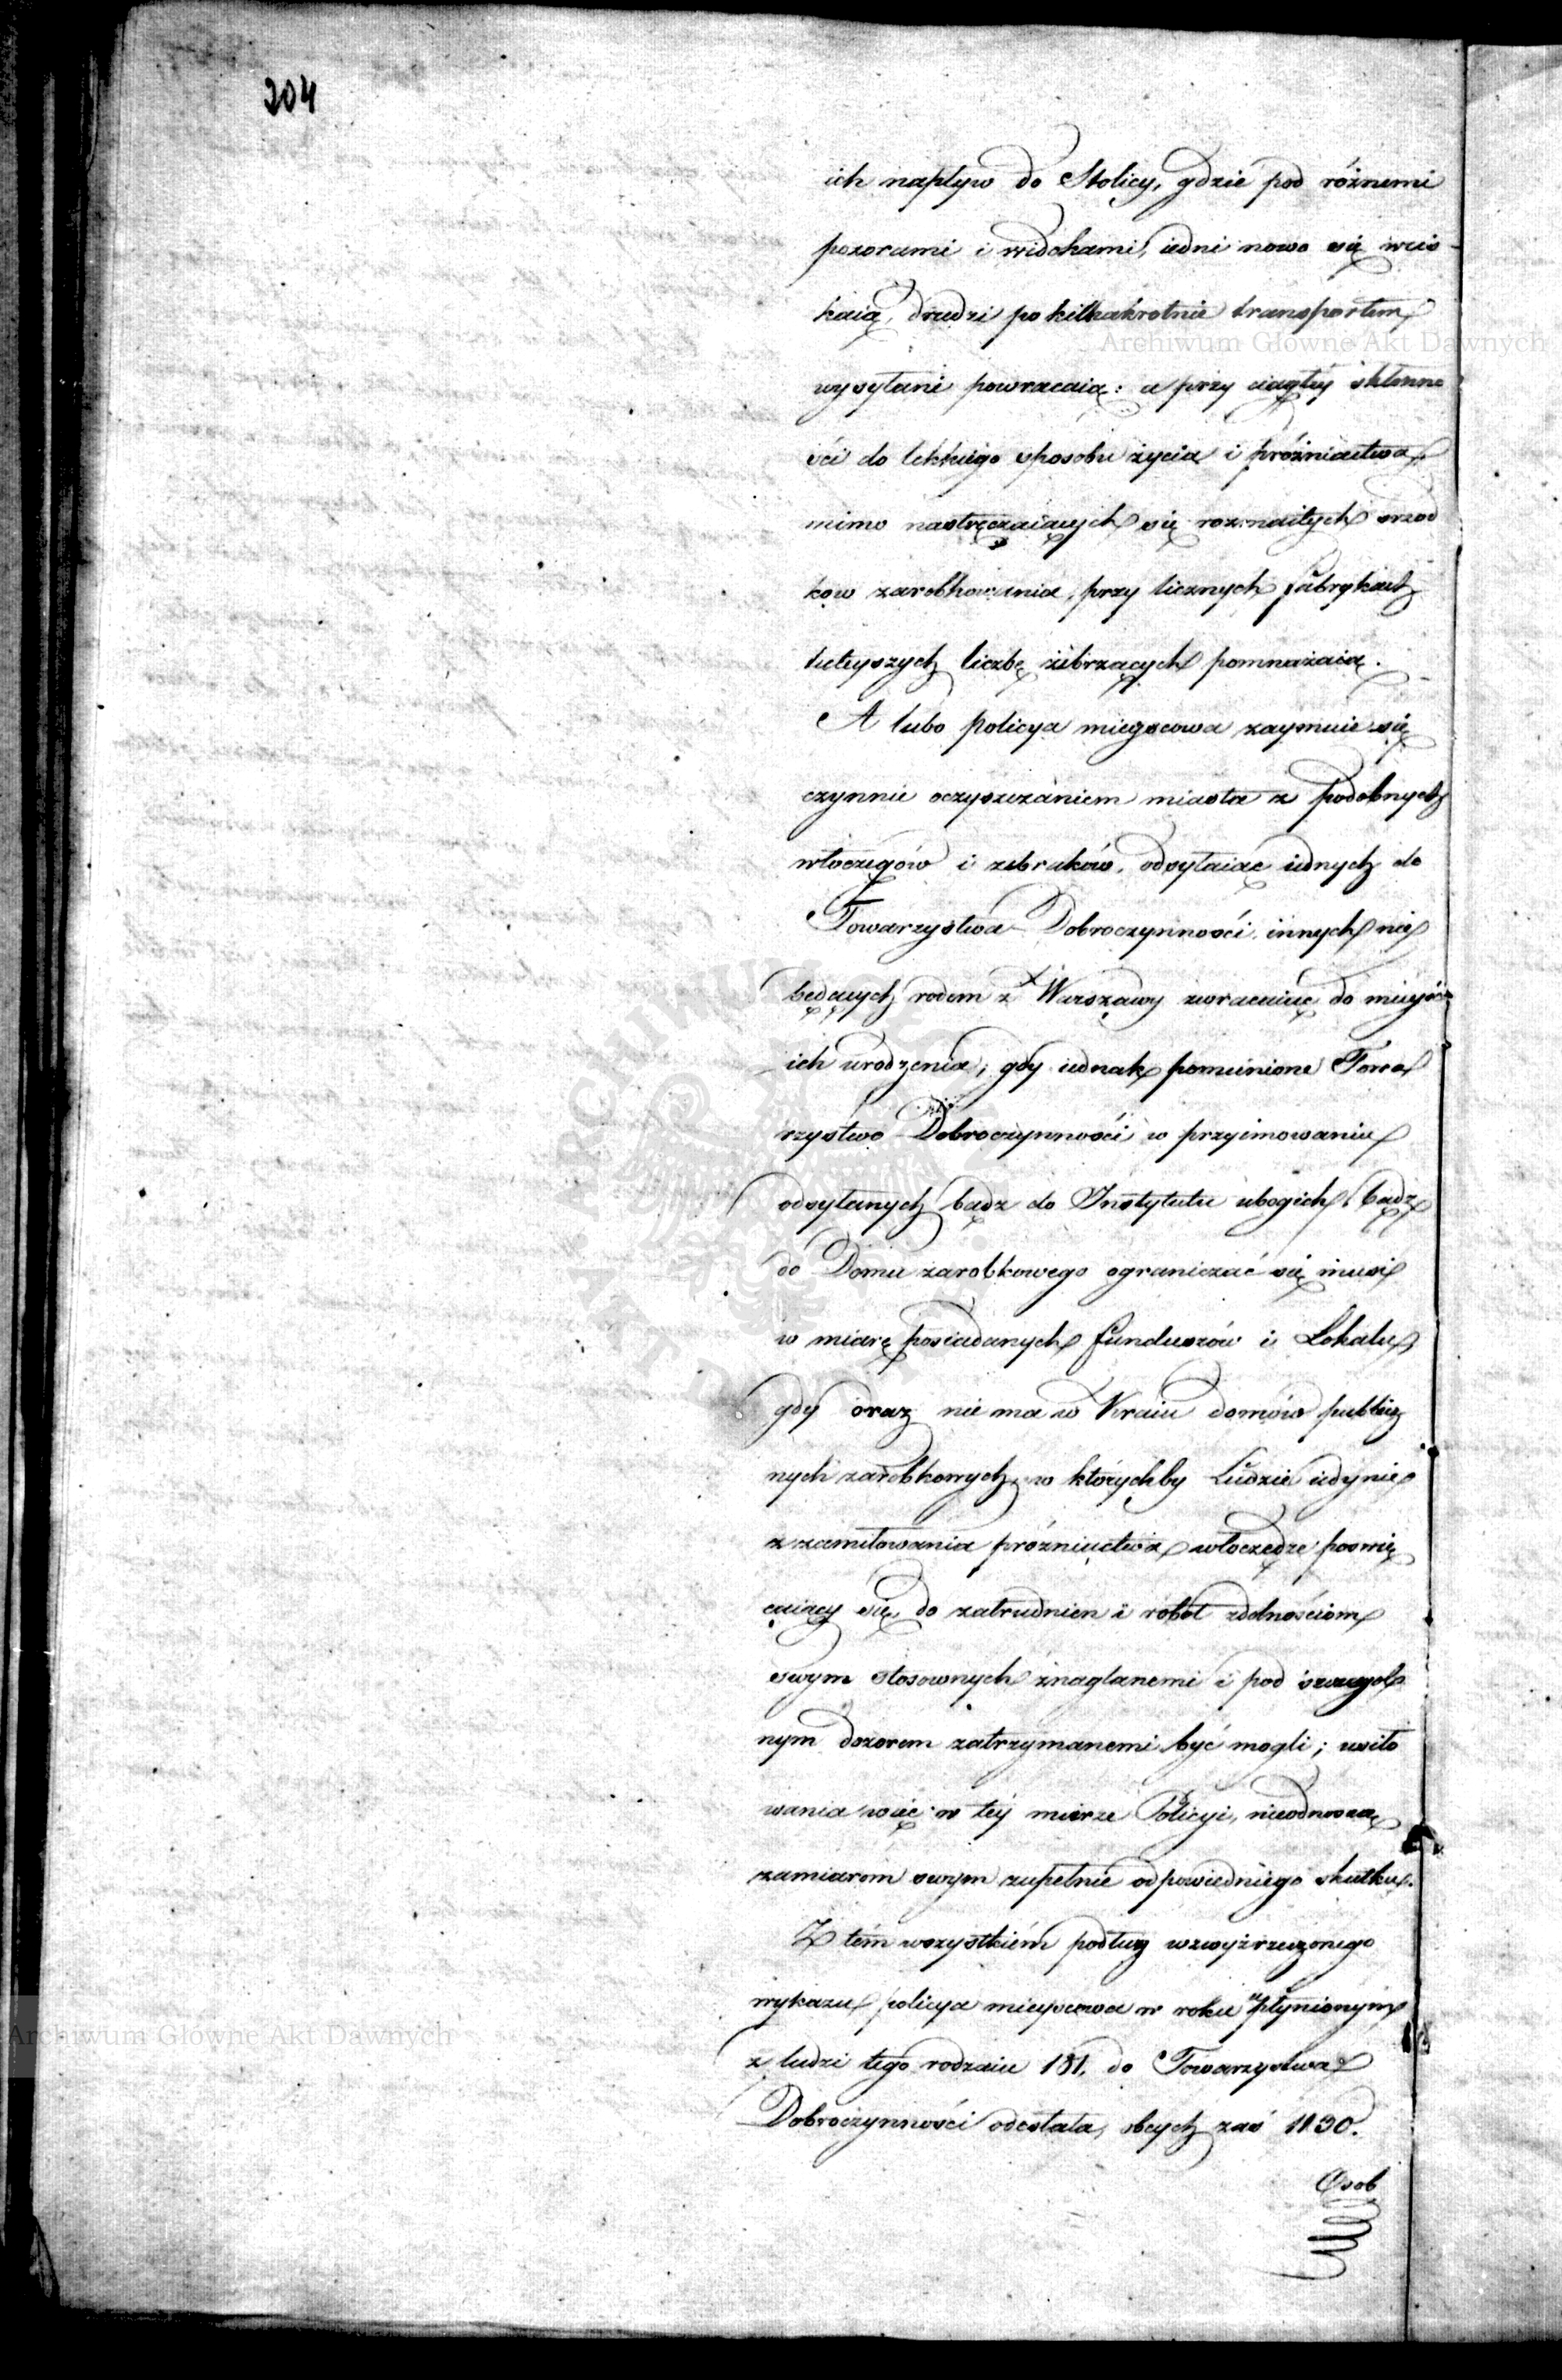 204
ich napływ do Stolicy, gdzie pod różnemi
pozorami i widokami, iedni nowo się wcis-
kaią, drudzi po kilkakrotnie transportem
wysyłani powracaią: a przy ciągłey skłonno
ści do lekkiego sposobu życia i próżniactwa
mimo nastręczaiących się rozmaitych srzod
kow zarobkowania, przy licznych fabrykach
tuteyszych liczbę żebrzących pomnażaią.
A lubo Policya mieyscowa zaymuie się
czynnie oczyszczaniem miasta z podobnych
włoczęgów i żebraków, odsyłaiąc iednych do
Towarzystwa Dobroczynności innych nie
będących rodem z Warszawy zwracaiąc do mieysc
ich urodzenia; gdy iednak pomienione Towa
rzystwo Dobroczynności w przyimowaniu
odsyłanych bądz do Instytutu ubogich, bądz
do Domu zarobkowego ograniczać się musi
w miarę posiadanych funduszów i Lokalu,
gdy oraz nie ma w Kraiu domów publicz
nych zarobkowych, w którychby Ludzie iedynie
z zamiłowania próżniactwa włoczędze poswię
caiący się, do zatrudnien i robot zdolnościom
swym stosownych znaglanemi i pod szczegól
nym dozorem zatrzymanemi być mogli; usiło
wania więc w tey mierze Policyi, nieodnoszą
zamiarom swym zupełnie odpowiedniego skutku.
Z tém wszystkiém podług wzwyżrzeczonego
wykazu policya mieyscowa w roku upłynionym
z ludzi tego rodzaiu 181. do Towarzystwa
Dobroczynności odesłała, obcych zaś 1130.
Osob
Archiwum Główne Akt Dawnych
Archiwum Główne Akt Dawnych